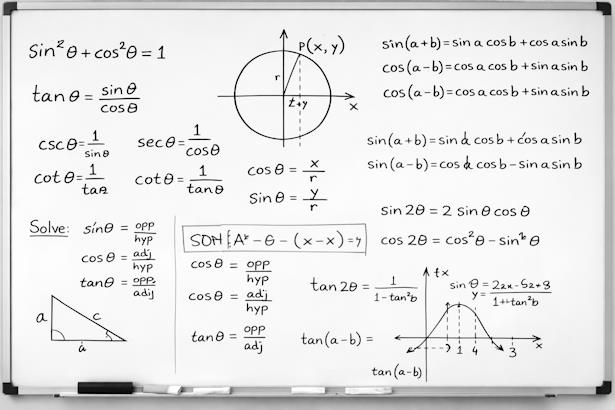 sin²θ + cos²θ = 1
tanθ = sinθ/cosθ
cscθ = 1/sinθ
secθ = 1/cosθ
cotθ = 1/tanθ
cotθ = 1/tanθ
P(x, y)
r
t+y
x
cosθ = x/r
sinθ = y/r
sin(a+b)=sin a cos b + cos a sin b
cos(a-b)=cos a cos b + sin a sin b
cos(a-b)=cos a cos b + sin a sin b
sin(a+b) = sin cos b + cos a sin b
sin(a-b) = cos cos b - sin a sin b
sin 2θ = 2 sinθ cosθ
cos 2θ = cos²θ - sin θ
Solve:
sinθ = opp/hyp
cosθ = adj/hyp
tanθ = opp/adij
a
c
a
- θ - (x-x) = y
cosθ = opp/hyp
cosθ = adj/hyp
tanθ = opp/adj
tan 2θ = 1/1-tan²b
tan(a-b) =
tx
sin θ
y = 22x-52+8/1++tan²b
1 4 3
x
tan(a-b)